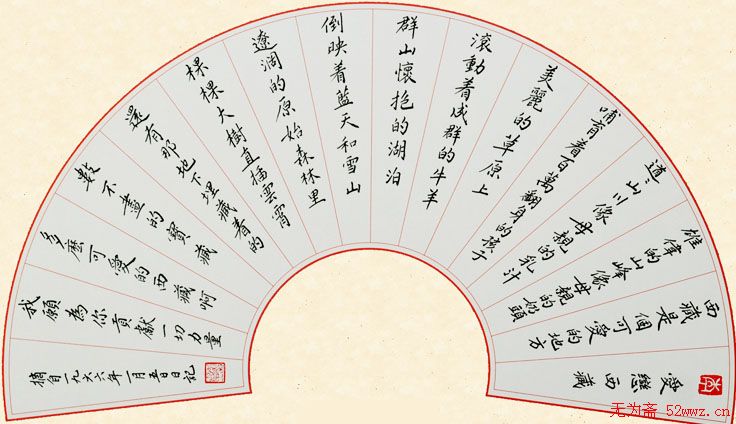 愛戀西藏
西藏是個可愛的地方
雄偉的山峰像母親的奶頭
道道山川像母親的乳汁
哺育着百萬翻身的孩子
美麗的草原上
滾動着成群的牛羊
群山懷抱的湖泊
倒映着藍天和雪山
遼濶的原始森林里
棵棵大樹直插雲霄
還有那地下埋藏着的
數不盡的寶藏
多麼可愛的西藏啊
我願為你貢獻一切力量
摘自一九六六年一月五日日記
无为斋 52wwz.cn